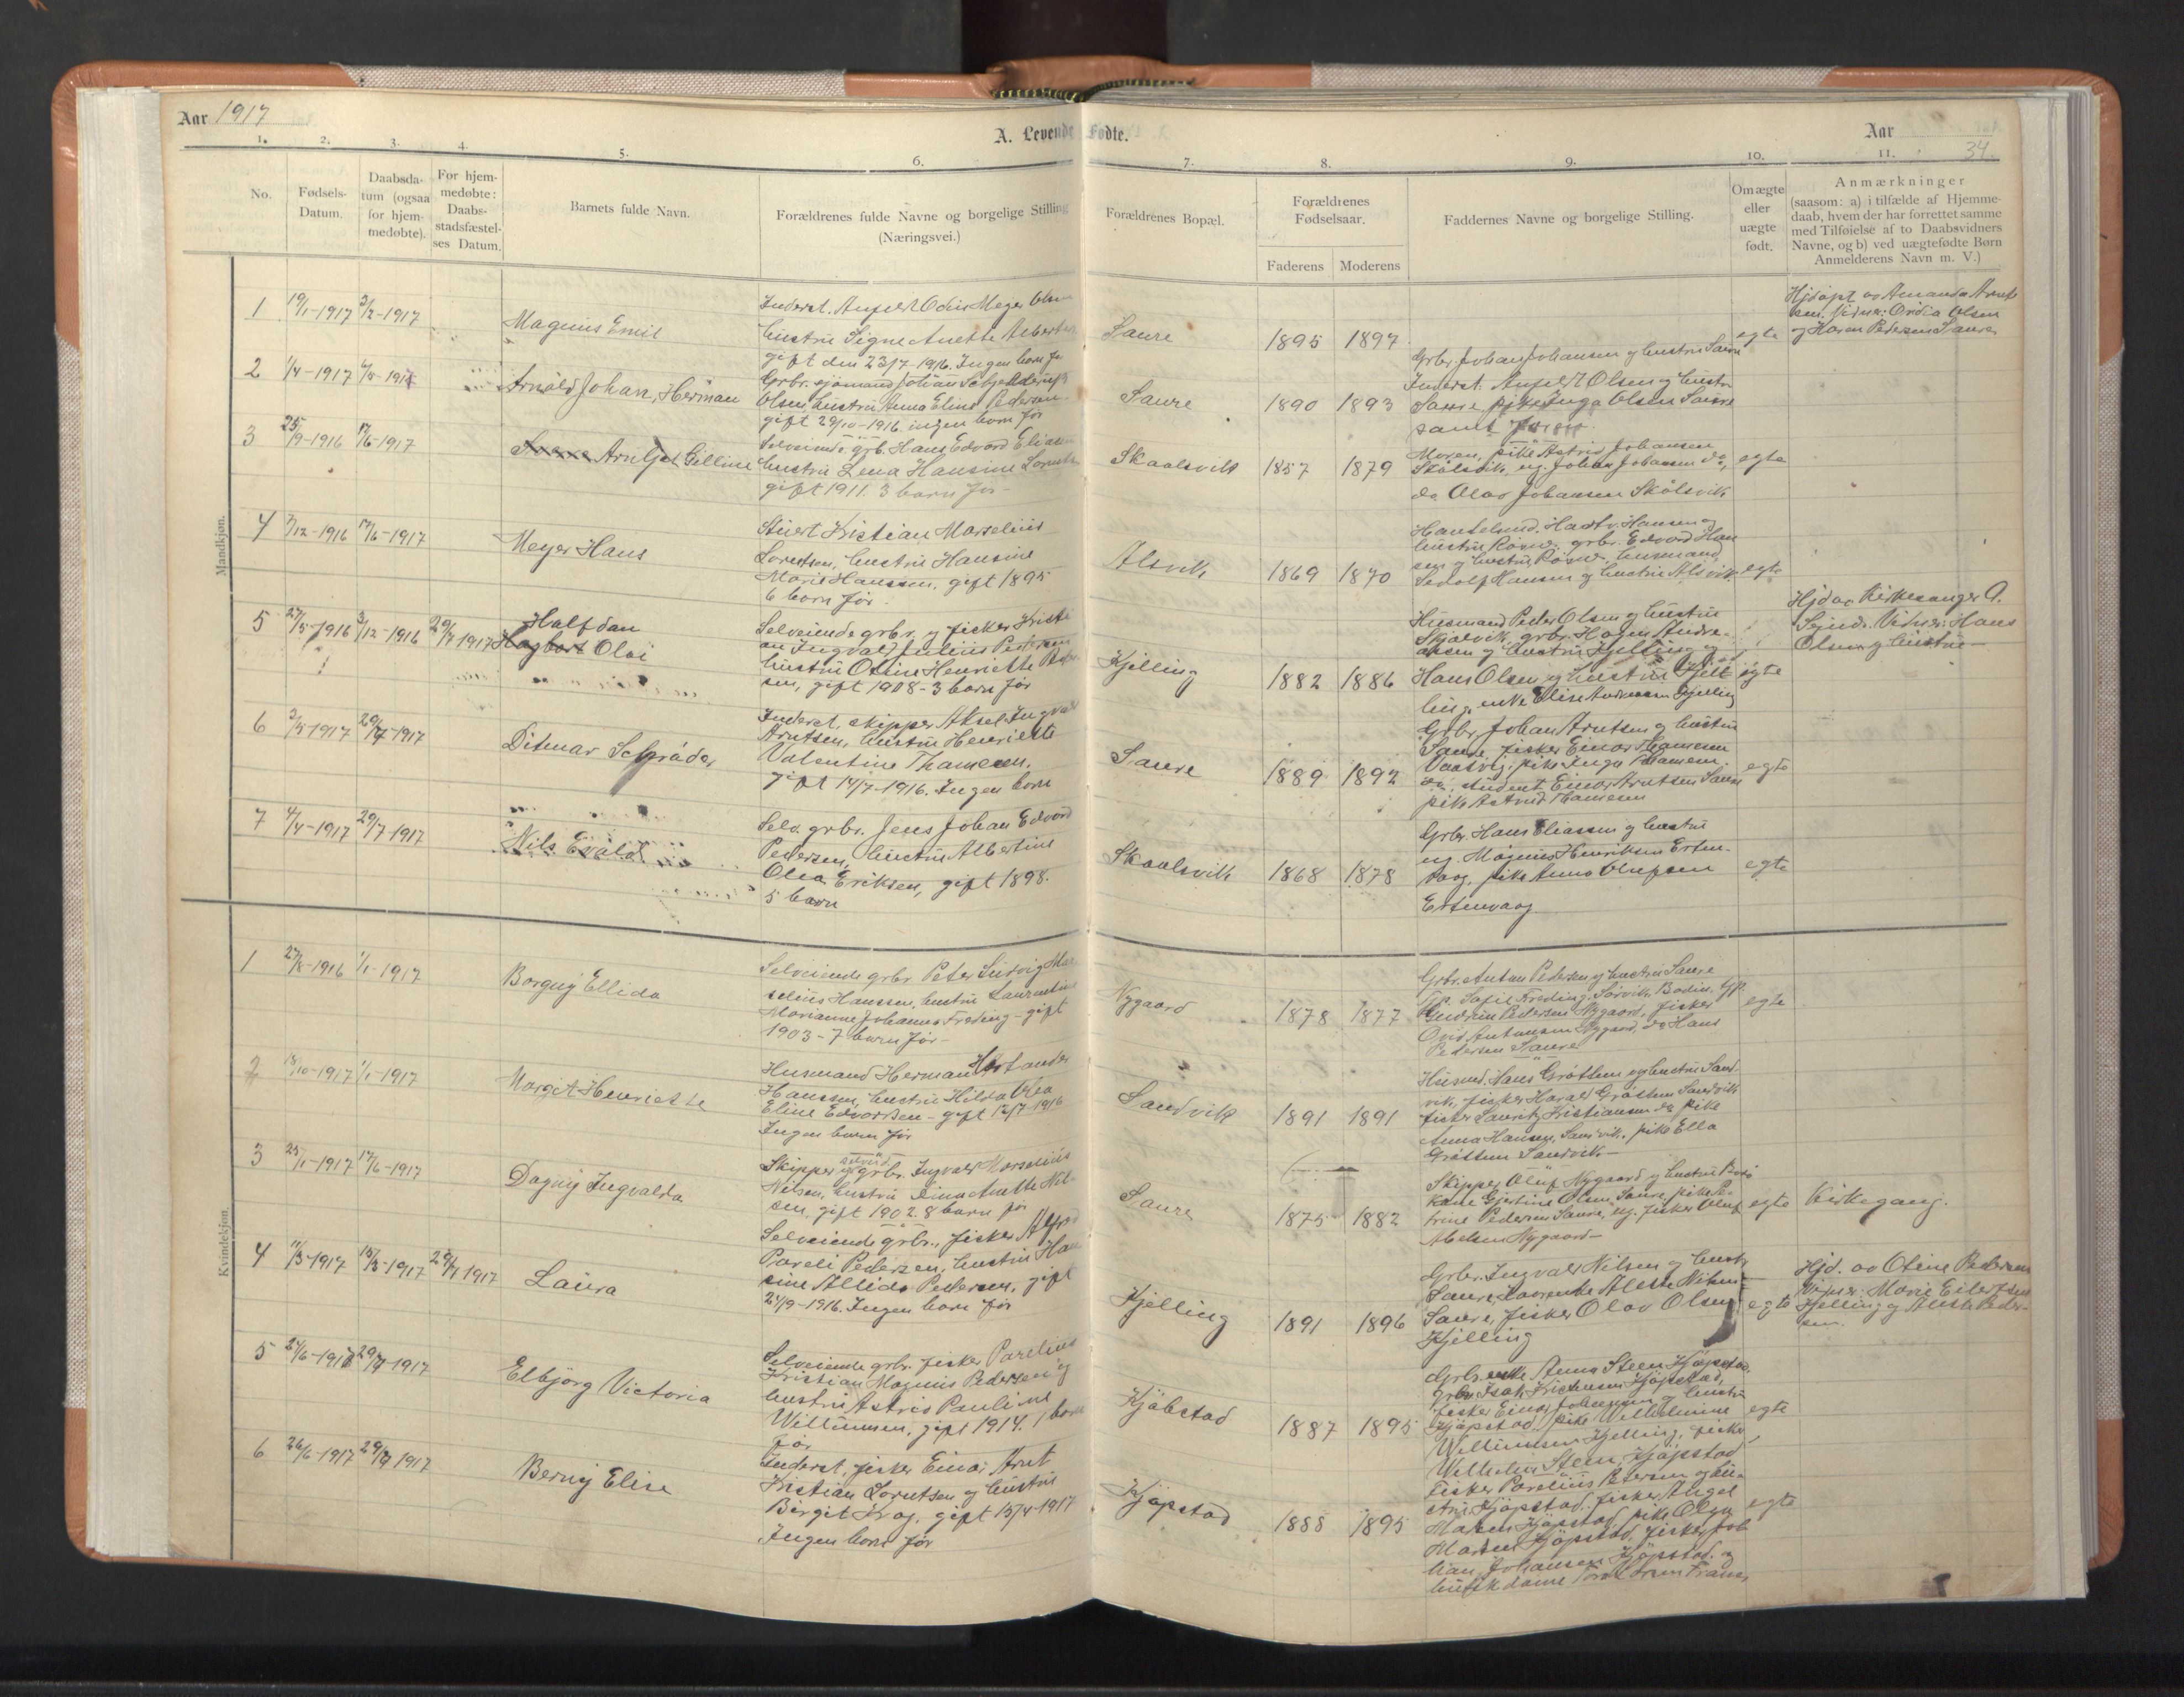 Aar 1917
A. Levende Fødte.
Aar
34.
1. 2. 3. 4. 5. 6. 7. 8. 9. 10. 11.
No.
Fødsels-
Datum.
Daabsda-
tum (ogsaa
for hjem-
medøbte).
For hjem-
medøbte:
Daabs-
stadsfæstel-
ses Datum.
Barnets fulde Navn.
Forældrenes fulde Navne og borgelige Stilling
(Næringsvei.)
Forældrenes Bopæl.
Forældrenes
Fødselsaar.
Faderens Moderens
Faddernes Navne og borgelige Stilling.
Om ægte
eller
uægte
født.
Anmærkninger
(saasom: a) i tilfælde af Hjemme-
daab, hvem der har forrettet samme
med Tilføielse af to Daabsvidners
Navne, og b) ved uægtefødte Børn
Anmelderens Navn m. V.)
Mandkjøn.
1 19/1-1917 3/2-1917
Magnus Emil
Inderst. Odin Meyer
hustru Signe Anette
gift den 23/7 1916. Ingen born
Saure 1895 1897
egte
Hjdøpt av Amanda
Vidner: Olsen
og Pedersen Saure
2 1/4-1917
Arnold Johan, Herman
Grbr. sjømand Johan
Olsen hustru Anna Eline Pedersen
gift 29/10-1916 ingen born før
Saure 1890 1893
Grbr. Johan Johansen og hustru Saure
Inderst. Olsen og hustru
Saure, pike Inga Olsen Saure
samt
3 25/9-1916 17/6-1917
Gelline
Selveiende grbr. Hans Edvard
hustru Lena Hansine
gift 1911. 3 born før
Skaalsvik 1857 1879
Moren, pike Astrid Johansen
Skålsvik, ug. Johan Johansen do,
do Olav Johansen Skålsvik
egte
4 7/12-1916 17/6-1917
Meyer Hans
Kristian Marselius
Lorentsen, hustru Hansine
Marie Hanssen, gift 1895
6 born før.
Alsvik 1869 1870
Hansen og
hustru grbr. Edvard Han
sen og hustru husmand
Hansen og hustru Alsvik
egte
5 27/5-1916 3/12-1916 29/7 1917
Halfdan
Hagbart Olai
Selveiende grbr. og fisker Kristi
an Ingvald Julius Pedersen
hustru Otine Henriette
sen, gift 1908 - 3 born før
Kjelling 1882 1886
Husmand Peder Olsen og hustru
grbr. Hagen Andre-
asen og hustru Kjelling og
Hans Olsen og hustru Kjel
ling, enke Elise Kjelling
egte
Hjd av Kirkesanger A.
Vidner: Hans
Olsen og hustru
6 2/5-1917 29/7-1917
Ditmar Schrøder
Inderst, skipper Aksel Ingvald
Arntsen, hustru Henriette
Valentine Thomesen,
gift 14/7-1916. Ingen born
Saure 1889 1892
Grbr. Johan Arntsen og hustru
Saure, fisker Einar Thomesen
pike Inga Thomesen
do, student Einar Arntsen Saure
pike Astrid Thomesen
egte
7 4/4-1917 29/7-1917
Nils Evald
Selv. grbr. Jens Johan Edvard
Pedersen, hustru Albertine
Olea Eriksen, gift 1898.
5 born
Skaalsvik 1868 1878
Grbr. Hans Eliassen og hustru
ug. Magnus Henriksen Erten-
vaag, pike Anna Olufsen
Ertenvaag
egte
Kvindekjøn.
1 27/8-1916 1/1-1917
Borgny Ellida
Selveiende grbr. Peter Ludvig Mar
selius Hanssen, hustru Laurentine
Marianne Johanna Freding - gift
1903 - 7 born før -
Nygaard 1878 1877
Grbr. Anton Pedersen og hustru Saure
Gp. Sofie Freding, Sørvik Bodin. Gp.
Gudrun Pedersen Nygaard, fisker
Ovid Antonsen Nygaard, do Hans
Pedersen Saure
egte
2 18/10-1917 1/1-1917
Margit Henriette
Husmand Herman
Hanssen, hustru Hilda Olea
Eline Edvardsen - gift 12/7 1916
Ingen born før
Sandvik 1891 1891
Husmd. Hans Grøttem og hustru Sand
vik, fisker Harald Grøttem Sandvik
fisker Lauritz Kristiansen do pike
Anna Hansen, Sandvik, pike Ella
Grøttem Sandvik
3 25/1-1917 17/6-1917
Dagny Ingvalda
Skipper og selveid. grbr. Ingvald Marselius
Nilsen, hustru Dina Anette Nil-
sen, gift 1902. 8 born før
Saure 1875 1882
Skipper Oluf Nygaard og hustru
Kone Gjertine Olsen Saure, pike Pe-
trine Pedersen Saure, ug. fisker Oluf
Nygaard
egte
Kirkegang.
4 11/3-1917 15/3-1917 29/7 1917
Laura
Selveiende grbr., fisker Alfred
Pareli Pedersen, hustru Han
sine Allida Pedersen, gift
24/9-1916. Ingen born før
Kjelling 1891 1896
Grbr. Ingvald Nilsen og hustru
Saure, Nilsen
Saure, fisker Olav Olsen
Kjelling
egte
Hjd. av Otine Pedersen
Vidner: Marie
Kjelling og Peder-
sen.
5 24/6-1917 29/7-1917
Elbjørg Victoria
Selveiende grbr. fisker Parelius
Kristian Magnus Pedersen og
hustru Astrid Pauline
Willumsen, gift 1914. 1 born
før
Kjøbstad 1887 1895
Grbr. enke Anna Steen Kjøpstad,
grbr. Isak Kristensen Kjøpstad,
fisker Einar Johansen og hustru
Kjøpstad pike Wilhelmine
Willumsen Kjelling, fisker
Wilhelm Steen, Kjøpstad
egte
6 26/6-1917 29/7 1917
Berny Elise
Inderst, fisker Einar Arnt
Kristian Lorntsen og hustru
Birgit Krog, gift 15/4-1917
Ingen born før
Kjøpstad 1888 1895
Fisker Parelius Petersen og hu-
stru Kjøpstad, fisker Angel
Kjøpstad, pike Olga
Kjøpstad, fisker
Johansen Kjøpstad og
egte